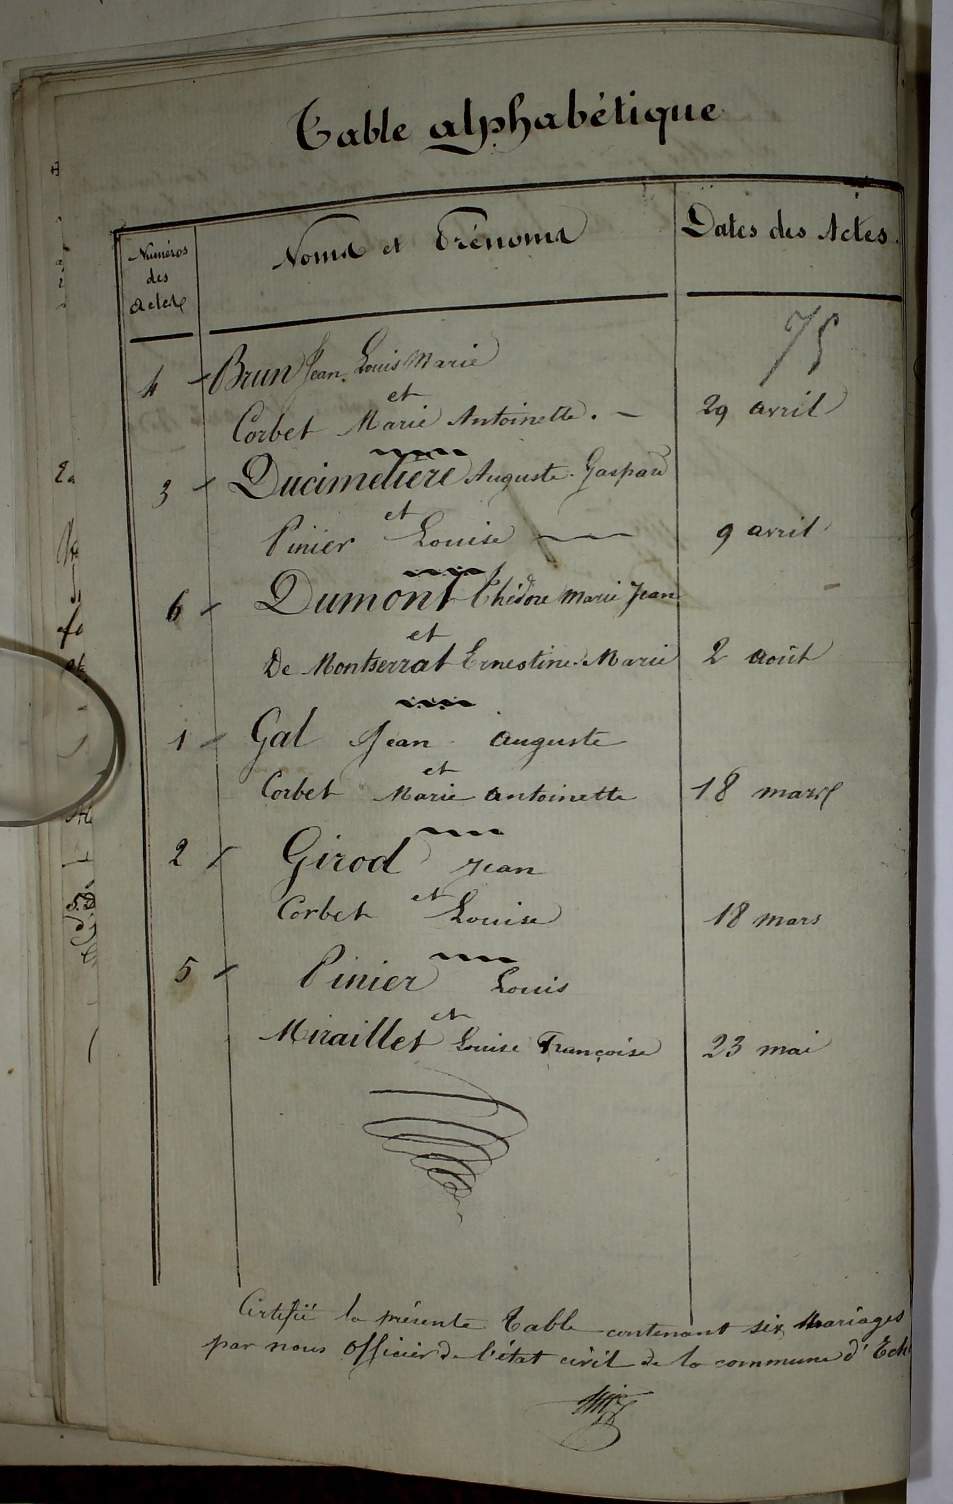 Table alphabétique
Numéros des actes
Noms et Prénoms
Dates des Actes.
75
4 Brun Jean Louis Marie
et
Corbet Marie Antoinette. 29 avril
3 Ducimetière Auguste Gaspard
et
Pinier Louise 9 avril
6 Dumont Thédore Marie Jean
et
De Montserrat Ernestine Marie 2 août
1 Gal Jean auguste
et
Corbet Marie antoinette 18 mars
2 Girod Jean
et
Corbet Louise 18 mars
5 Pinier Louis
et
Miraillet Louise Françoise 23 mai
Certifié la présente Table contenant six Mariages
par nous Officier de l'état civil de la commune d'Ech